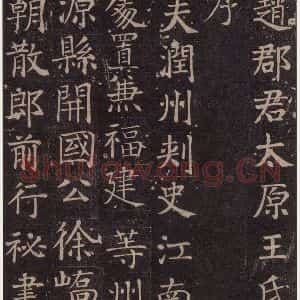 趙郡君太原王氏
序
夫潤州刺史江南
篆置兼福建等州
源縣開國公徐嶠
朝散郎前行祕書
Shufawang.CN